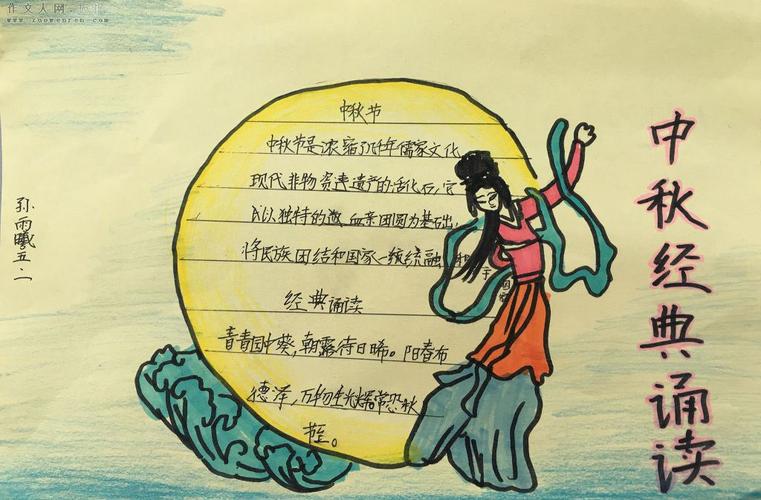 作文人网
www.zuowenren.com
中秋经典诵读
孙雨曦五.二
中秋节
中秋节是浓缩了几千年儒家文化
现代非物资遗产的活化石,它
以独特的血亲团圆为基础,
将民族团结和国家一统统融和于
经典诵读
青青园中葵,朝露待日晞。阳春布
德泽,万物生光辉常恐秋
节至。